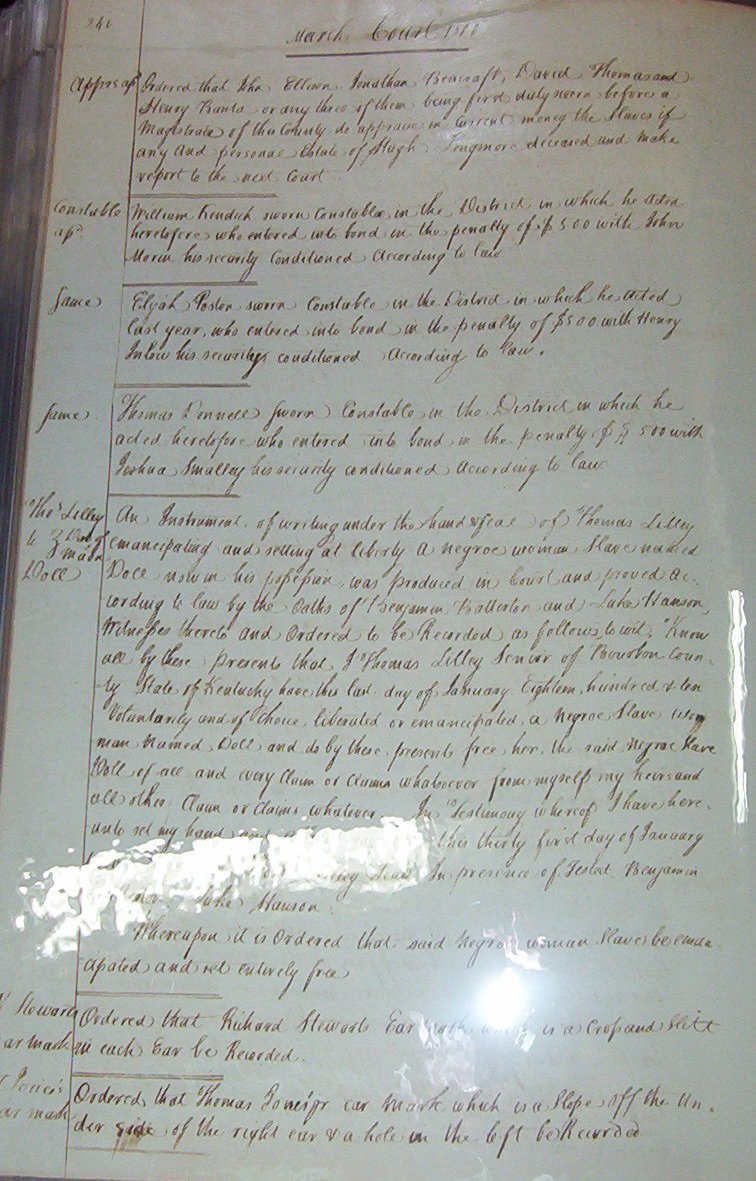 240
March Court 1810
Appros ap
Ordered that John Ellison Jonathan Beacraft, David Thomas and
Henry Banta or any three of them being first duly sworn before a
Magistrate of this County do appraise in Current money the Slaves if
any And personal Estate of Hugh Longmore deceased and make
report to the next Court
Constable
ap.
William Kendick sworn Constable in the District in which he acted
heretofore who entered into bond in the penalty of $500 with John
Morin his security Conditioned According to law
Same
Elijah Poston sworn Constable in the District in which he acted
last year, who entered into bond in the penalty of $500 with Henry
Inlow his security conditioned According to law.
Same
Thomas Donnell Sworn Constable in the District in which he
acted heretofore who entered into bond in the penalty of $500 with
Joshua Smalley his security conditioned According to law
Thos Lilley
to Deed of
man
Doll
An Instrument of writing under the hand & seal of Thomas Lilley
emancipating and setting at liberty A negroe woman Slave named
Doll now in his possession, was produced in Court and proved Ac-
cording to law by the Oaths of Benjamin Batterton and Luke Hanson,
Witnesses thereto and Ordered to be Recorded as follows, to wit, "Know
all by these presents that I Thomas Lilley Senior of Bourbon Coun-
ty State of Kentucky have this last day of January Eighteen hundred & ten
Voluntarily and of Choice liberated or emancipated a Negroe Slave Wo
man Named Doll and do by these presents free her, the said Negroe Slave
Doll of all and every Claim or Claims whatsoever from myself my heirs and
all other Claim or Claims whatever In Testimony whereof I have here-
unto set my hand and this thirty first day of January
In presence of Tested Benjamin
Luke Hanson
Whereupon it is Ordered that said Negroe woman Slave be eman
cipated and set entirely free
Stewarts
ar mark
Ordered that Richard Stewarts Ear mark which is a Crop and Slitt
in each Ear be Recorded.
ar mark
Ordered that Thomas Jones jr ear mark which is a Slope off the Un-
der side of the right ear & a hole in the left be Recorded